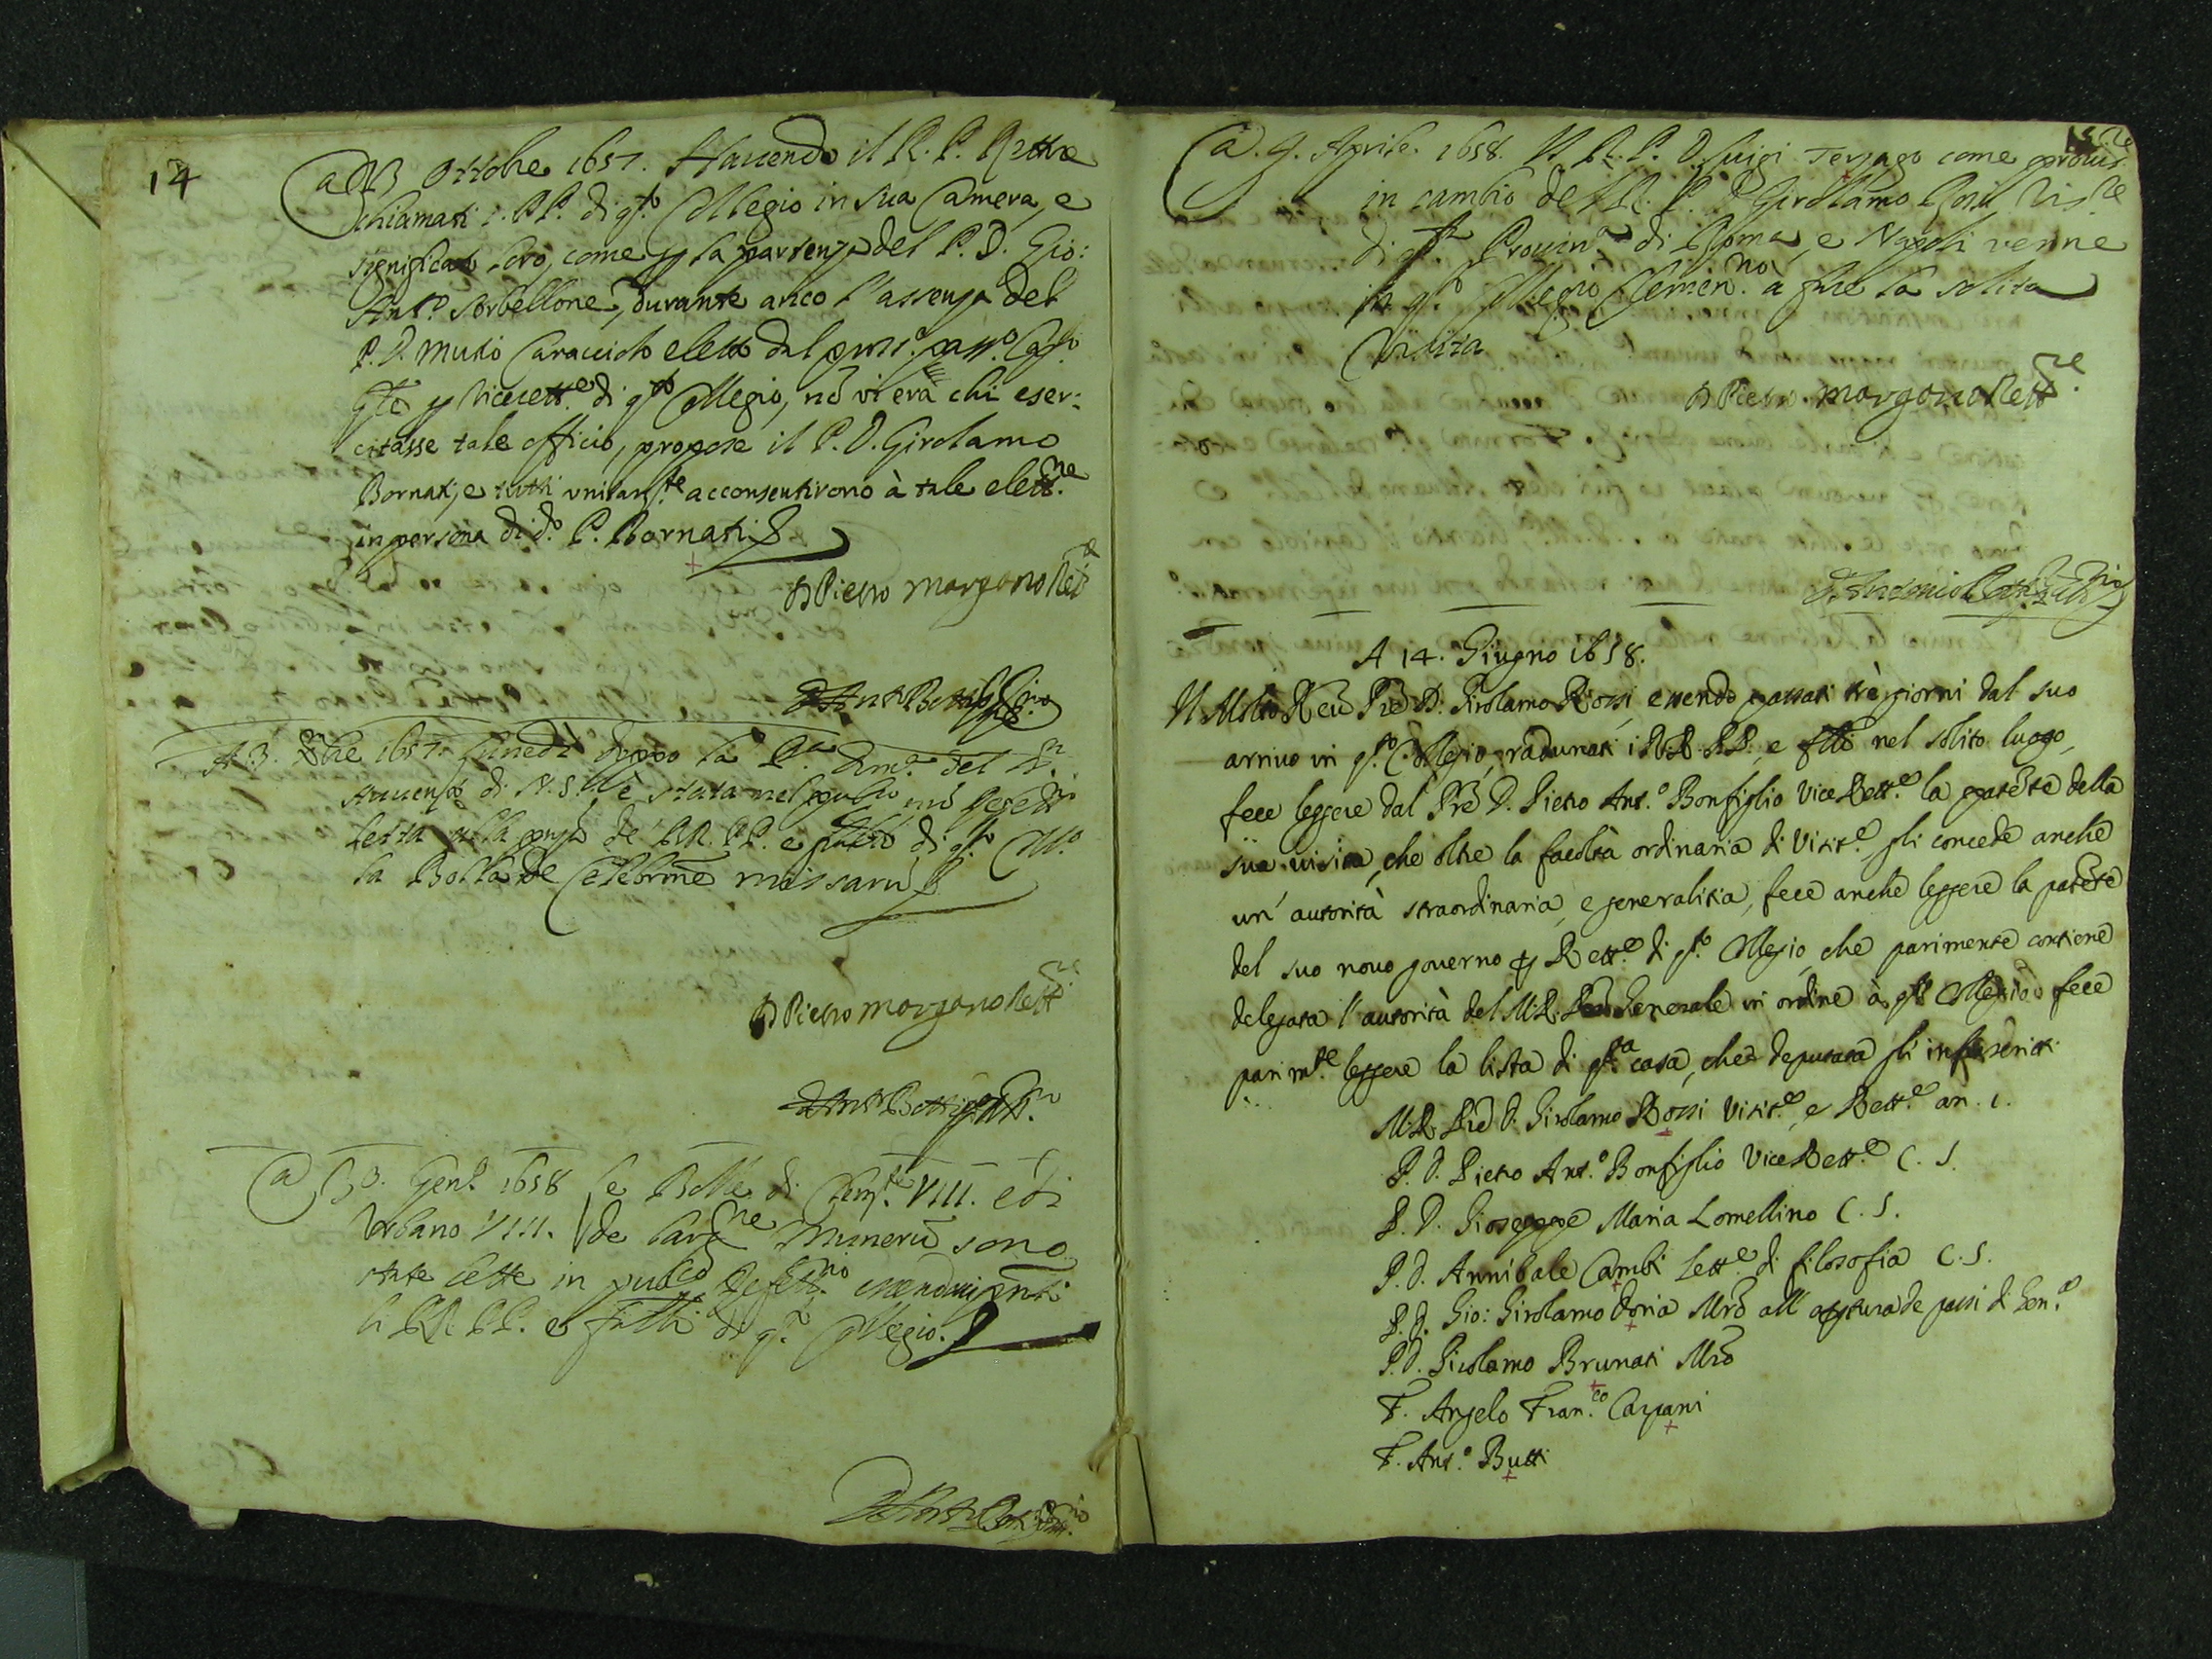 14
a 23 Ottobre 1657. Hauendo il R. P. Rettore
chiamati i PP. di q.to Collegio in sua Camera, e
significato loro, come p la partenza del P. D. Gio:
Ant.o Serbellone, durante anco l'assenza del
P. D. Mutio Caracciolo eletto dal pross.o pass.o Cap.lo
Gñle p Vicerett.e di q.to Collegio, nõ vi era chi eser:
citasse tale officio, propose il P. D. Girolamo
Bornati, e tutti unitam.te acconsentirono à tale elett.ne
in persona di d.o P. Bornati
D Pietro Morgano Rett.e
D Ant.o
A 3. Xbre 1657. Lunedì doppo la P.a Dom.ca del
Auuento di N. S. è stata nel publico nr̃o Refett.rio
letta alla pñza de' RR. PP. e fr̃lli di q.to Coll.o
la Bolla De Celebr.ne missarũ
D Pietro Morgano Rett.e
D Ant.o
a 3. Gen.o 1658 le Bolle di Clem.te VIII. e di
Urbano VIII. de larg.ne Munerũ sono
state lette in publico Refett.rio essendoui pñti
li RR. PP. e fr̃lli di q.to Collegio.
D Ant.o
15
a. 4. Aprile. 1658. Il R. P. D. Luigi Terzago come prouis.re
in cambio del R. P. D Girolamo Rossi Vis.re
di q.ta Prouin.a di Roma, e Napoli venne
in q.to Collegio Clemen.no à fare la solita
Visita
D Pietro Morgano Rett.re
D. Antonio
A 14. Giugno 1658.
Il Molto Reu. Prẽ D. Girolamo Rossi, essendo passati trè giorni dal suo
arriuo in q.to Collegio, radunati i RR. PP. e fr̃lli nel solito luogo,
fece leggere dal Prẽ D. Pietro Ant.o Bonfiglio ViceRett.e la patẽte della
sua visita, che oltre la facoltà ordinaria di Visit.e gli concede anche
un' autorità straordinaria, e generalitia, fece anche leggere la patẽte
del suo nouo gouerno p Rett.e di q.to Collegio, che parimente contiene
delegata l'autorità del M. R. Prẽ Generale in ordine à q.to Collegio: fece
parim.te leggere la lista di q.ta casa, che deputaua gli infrascritti
M. R. Prẽ D. Girolamo Rossi Visit.e, e Rett.e an. 1.
P. D. Pietro Ant.o Bonfiglio ViceRett.e C. S.
P. D. Gioseppe Maria Lomellino C. S.
P. D. Annibale Cambi Lett.e di filosofia C. S.
P. D. Gio: Girolamo Doria Mrõ all' apertura de passi di Gen.a
P. D. Girolamo Brunati Mrõ
F. Angelo Fran.co Carpani
F. Ant.o Butti